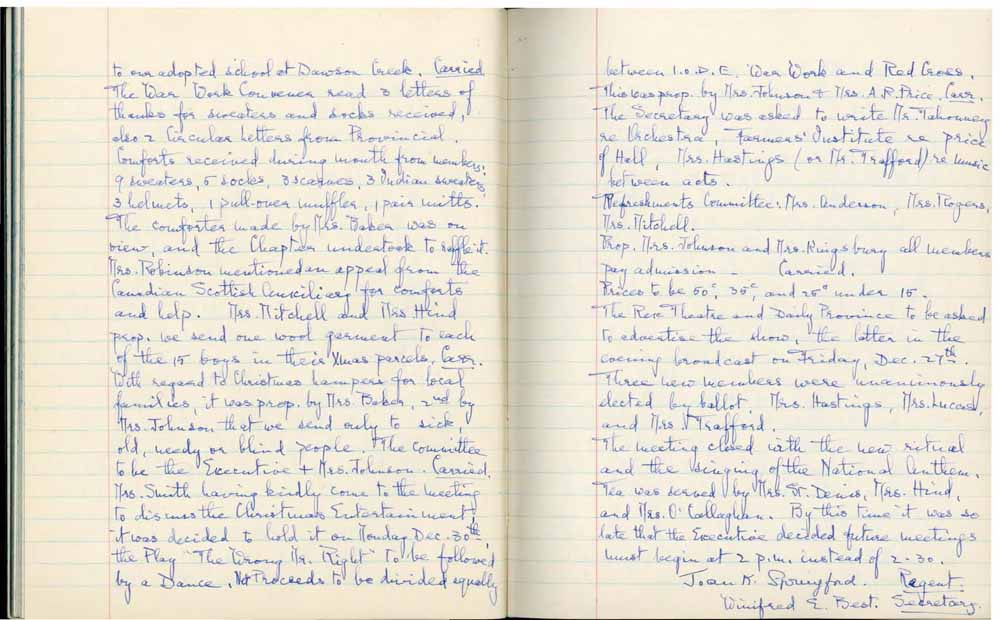 to our adopted school at Dawson Creek. Carried
The War Work Convener read 3 letters of
thanks for sweaters and socks received,
also 2 Circular Letters from Provincial.
Comforts received during month from members:
9 sweaters, 5 socks, 3 scarves, 3 Indian sweaters,
3 helmets, 1 pull-over muffler, 1 pair mitts.
The comforter made by Mrs. Baker was on
view, and the Chapter undertook to raffle it.
Mrs. Robinson mentioned an appeal from the
Canadian Scottish Auxiliary for comforts
and help. Mrs. Mitchell and Mrs Hind
prop. we send one wool garment to each
of the 15 boys in their Xmas parcels. Carr.
With regard to Christmas hampers for local
families, it was prop. by Mrs. Baker, 2nd by
Mrs. Johnson that we send only to sick,
old, needy or blind people. The committee
to be the Executive + Mrs. Johnson. Carried.
Mrs. Smith having kindly come to the meeting
to discuss the Christmas Entertainment,
it was decided to hold it on Monday Dec. 30th,
the Play "The Wrong Mr. Right" to be followed
by a Dance. Net Proceeds to be divided equally
between I.O.D.E. War Work and Red Cross.
This was prop. by Mrs. Johnson + Mrs. A.R. Price. Carr.
The Secretary was asked to write Mr.
re Orchestra, Farmers' Institute re price
of Hall, Mrs. Hastings (or Mr. Trafford) re music
between acts.
Refreshments Committee: Mrs. Anderson, Mrs. Rogers,
Mrs. Mitchell.
Prop. Mrs. Johnson and Mrs. Kingsbury all members
pay admission - Carried.
Prices to be 50c, 35c, and 25c under 15.
The Rex Theatre and Daily Province to be asked
to advertise the show, the latter in the
evening broadcast on Friday, Dec. 27th.
Three new members were unanimously
elected by ballot, Mrs. Hastings, Mrs. Lucas,
and Mrs Trafford.
The meeting closed with the new ritual
and the singing of the National Anthem.
Tea was served by Mrs. St. Denis, Mrs. Hind,
and Mrs. O'Callaghan. By this time it was so
late that the Executive decided future meetings
must begin at 2 p.m. instead of 2-30.
Joan K. Regent.
Winifred E. Best. Secretary.